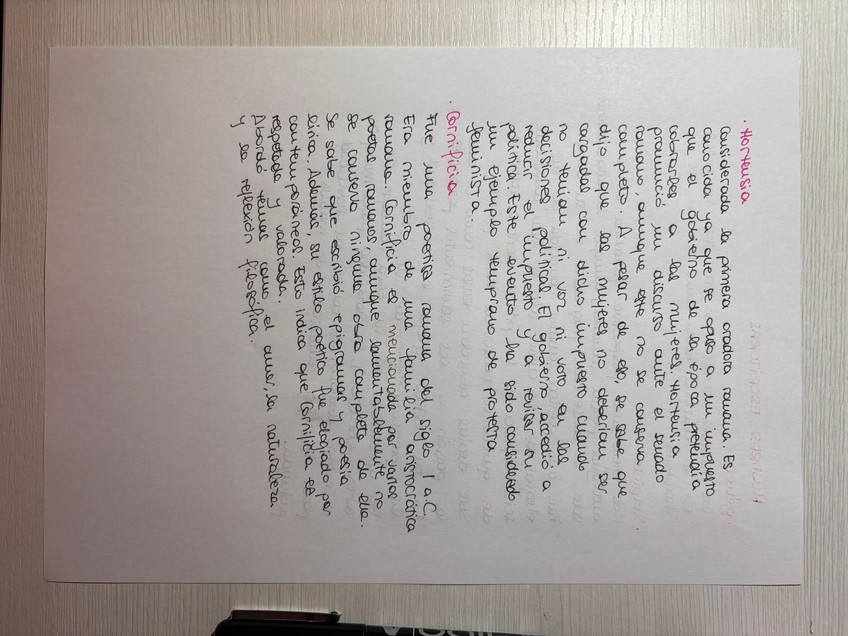 · Hortensia
Considerada la primera oradora romana. Es
conocida ya que se opuso a un impuesto
que el gobierno de la época pretendía
cobrarles a las mujeres. Hortensia
pronunció un discurso ante el senado
romano, aunque este no se conserva
completo. A pesar de eso, se sabe que
dijo que las mujeres no deberían ser
cargadas con dicho impuesto cuando
no tenían ni voz ni voto en las
decisiones políticas. El gobierno, accedió a
reducir el impuesto y a revisar su
política. Este evento ha sido considerado
un ejemplo temprano de protesta
feminista.
· Cornificia
Fue una poetisa romana del siglo I a.C.
Era miembro de una familia aristocrática
romana. Cornificia es mencionada por varios
poetas romanos, aunque lamentablemente no
se conserva ninguna obra completa de ella.
Se sabe que escribió epigramas y poesía
lírica. Además, su estilo poético fue elogiado por
contemporáneos. Esto indica que Cornificia es
respetada y valorada.
Abordó temas como, el amor, la naturaleza
y la reflexión filosófica.